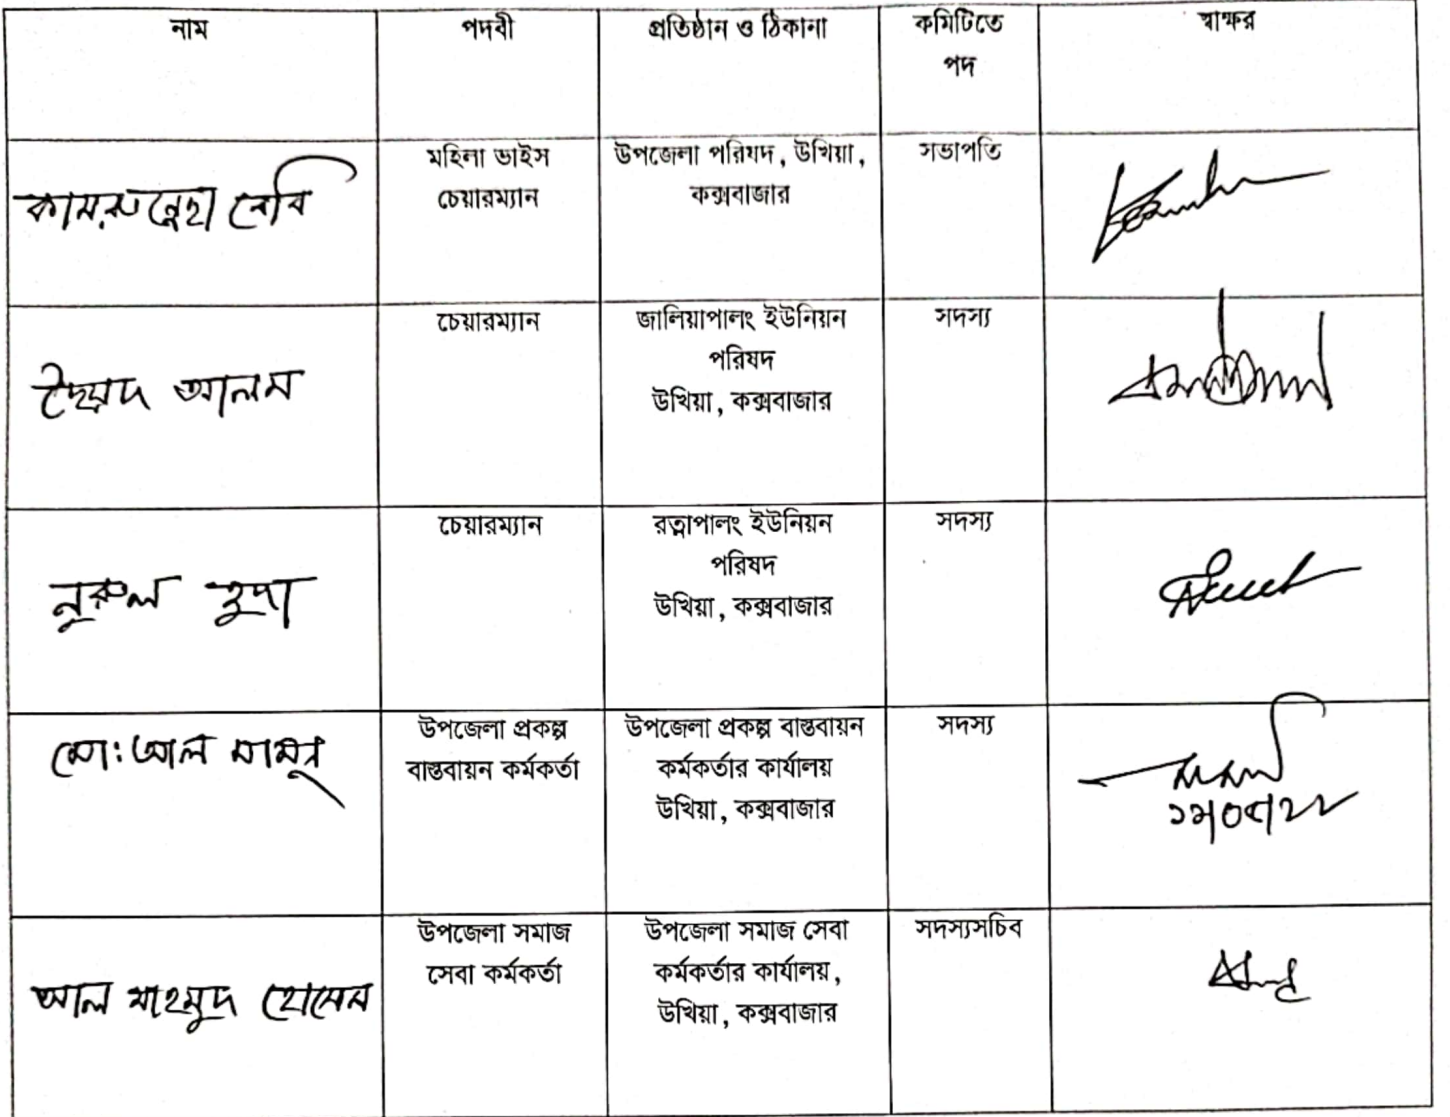 নাম পদবী প্রতিষ্ঠান ও ঠিকানা কমিটিতে পদ স্বাক্ষর
কামরুন্নেছা বেবি
মহিলা ভাইস
চেয়ারম্যান
উপজেলা পরিষদ, উখিয়া,
কক্সবাজার
সভাপতি
ছৈয়দ আলম
চেয়ারম্যান
জালিয়াপালং ইউনিয়ন
পরিষদ
উখিয়া, কক্সবাজার
সদস্য
নুরুল হুদা
চেয়ারম্যান
রত্নাপালং ইউনিয়ন
পরিষদ
উখিয়া, কক্সবাজার
সদস্য
মো: আল মামুন
উপজেলা প্রকল্প
বাস্তবায়ন কর্মকর্তা
উপজেলা প্রকল্প বাস্তবায়ন
কর্মকর্তার কার্যালয়
উখিয়া, কক্সবাজার
সদস্য
আল মাহমুদ হোসেন
উপজেলা সমাজ
সেবা কর্মকর্তা
উপজেলা সমাজ সেবা
কর্মকর্তার কার্যালয়,
উখিয়া, কক্সবাজার
সদস্যসচিব